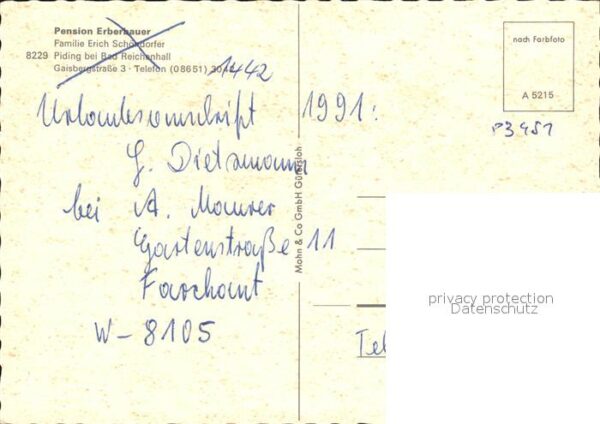 Pension Erberbauer
Familie Erich Schöndorfer
8229 Piding bei Bad Reichenhall
Gaisbergstraße 3 · Telefon (08651)
1442
nach Farbfoto
A 5215
P3451
Urlaubsanschrift 1991:
G. Dietzmann
bei A. Maurer
Gartenstraße 11
Farchant
W-8105
Mohn & Co GmbH Gütersloh
privacy protection
Datenschutz
Tel